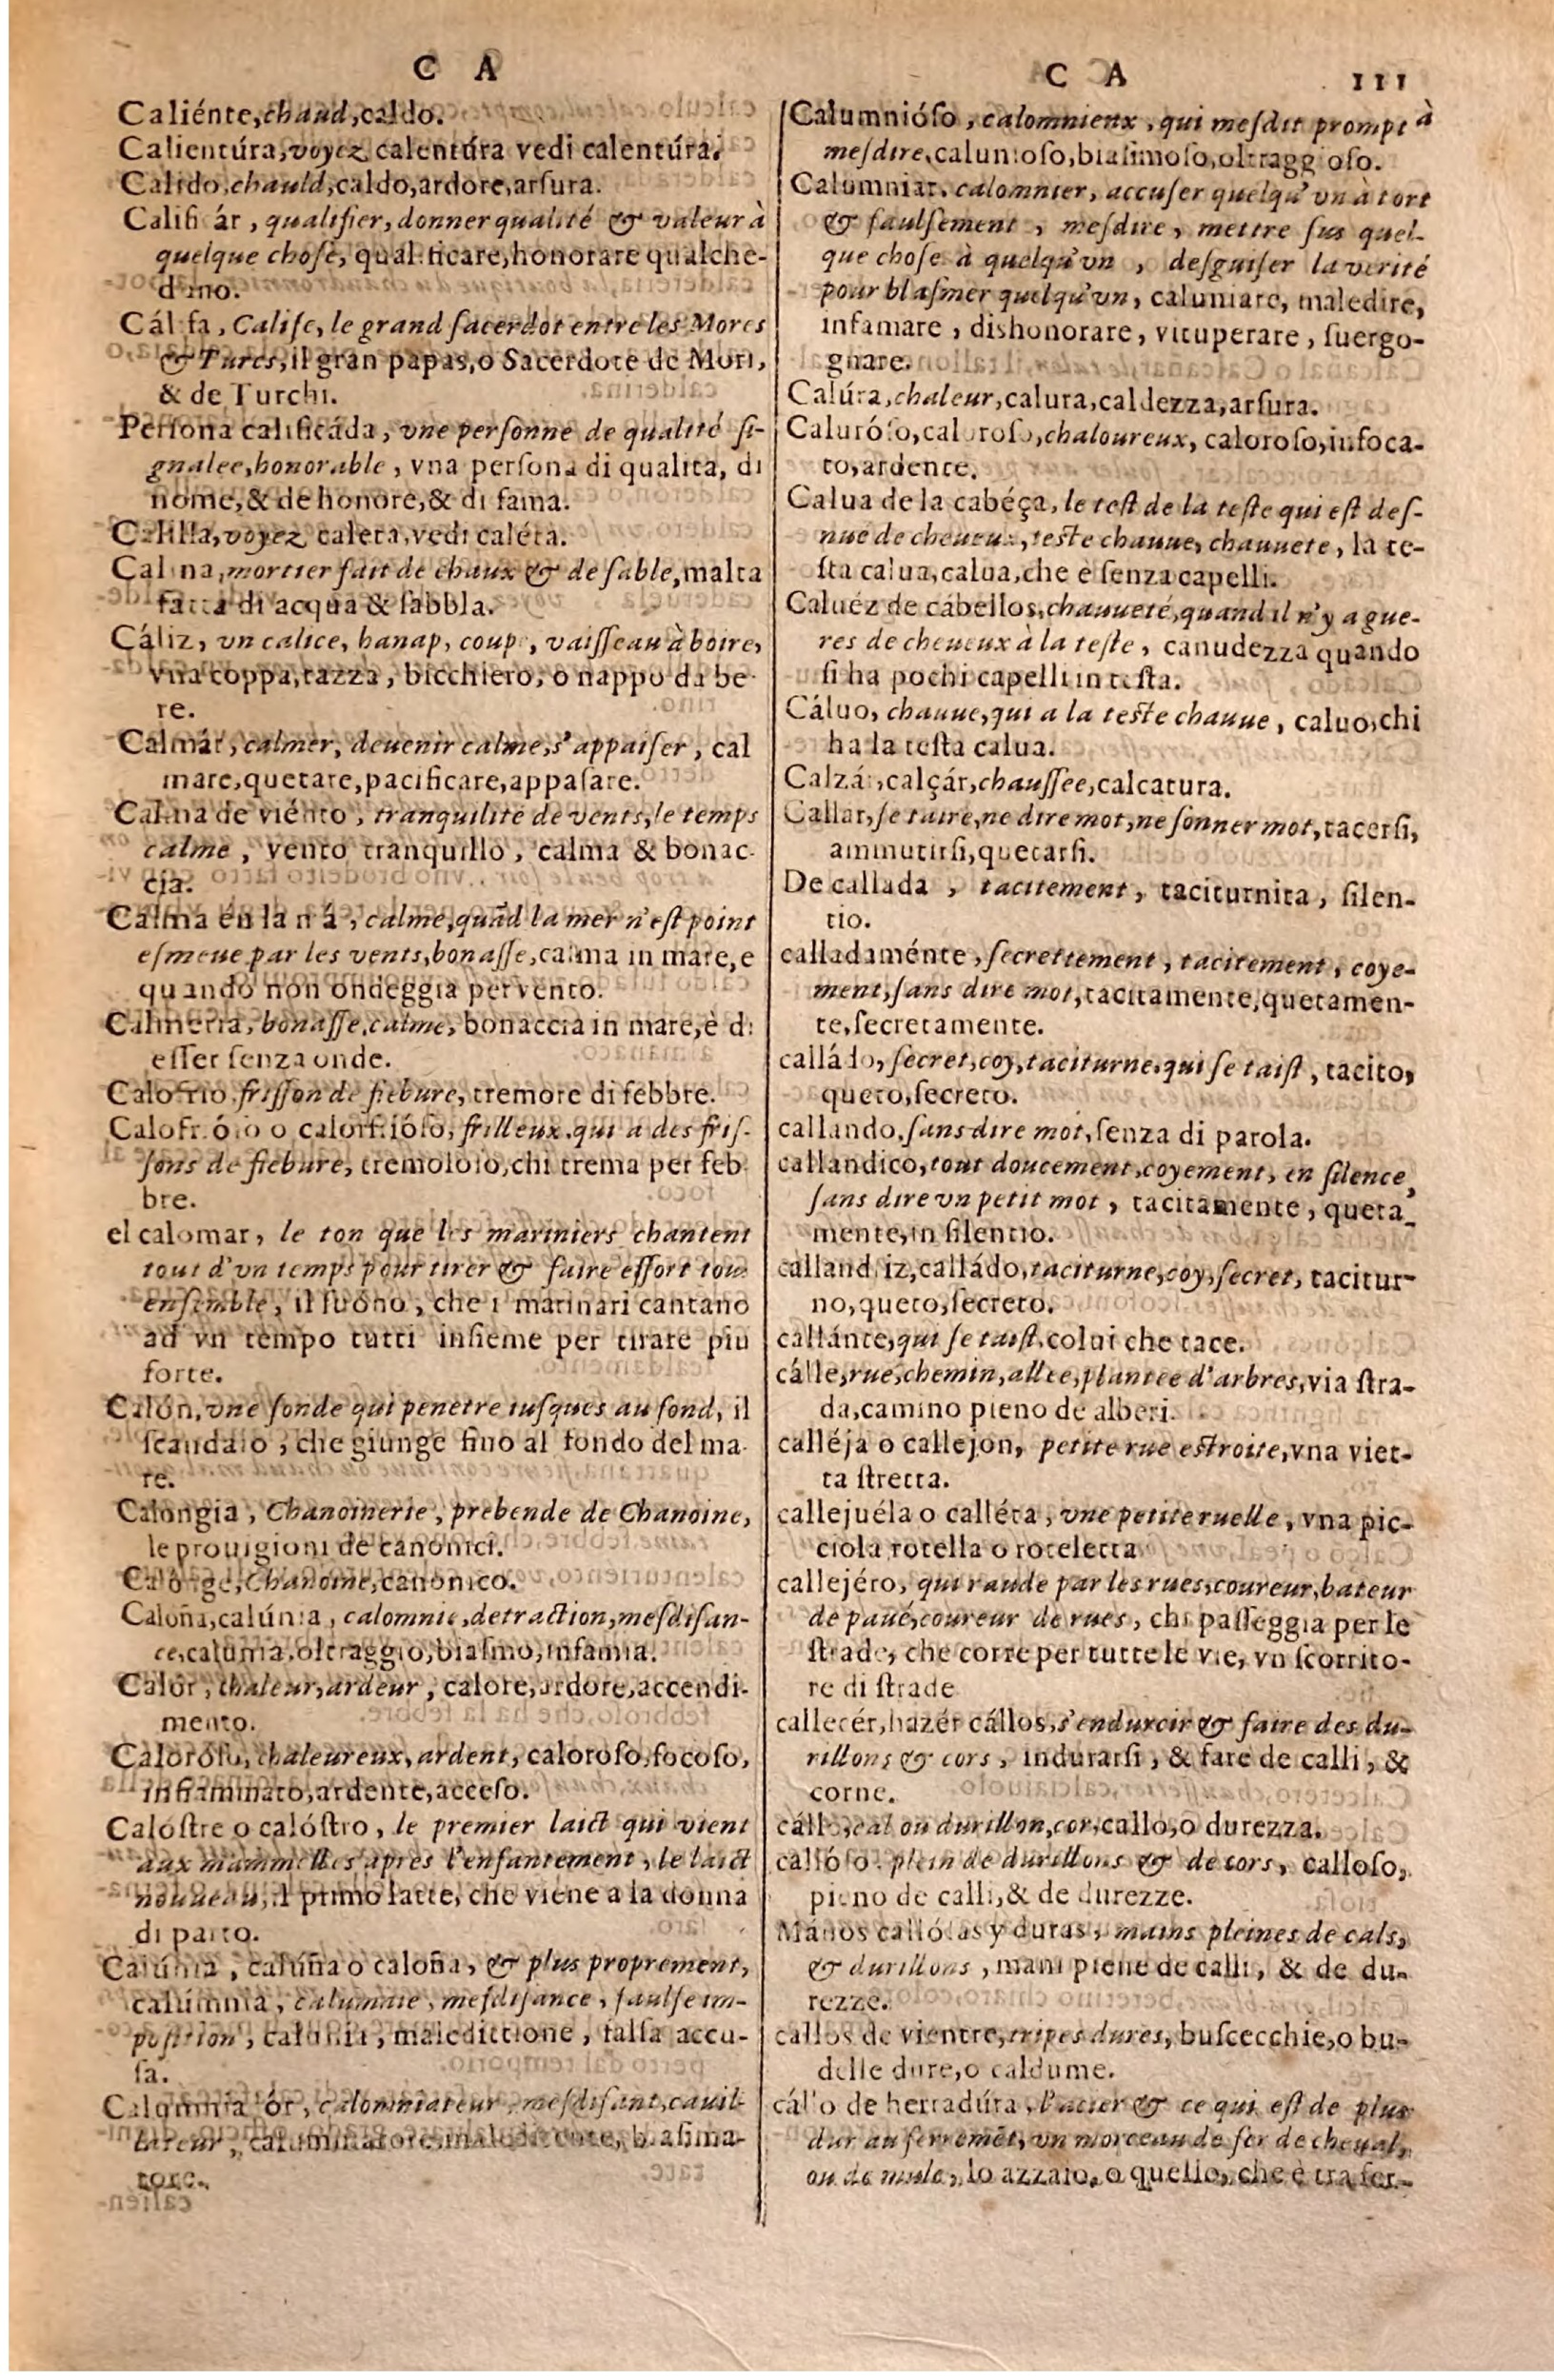 C A
Caliénte, chaud, caldo.
Calientúra, voyez calentúra vedi calentúra.
Calido, chauld, caldo, ardore, arſura.
Calificár, qualifier, donner qualité & valeur à
quelque choſe, qualificare, honorare qualche-
duno.
Cálifa, Calife, le grand ſacerdot entre les Mores
& Turcs, il gran papas, o Sacerdote de Mori,
& de Turchi.
Perſona calificáda, vne perſonne de qualité ſi-
gnalee, honorable, vna perſona di qualita, di
nome, & de honore, & di fama.
Calilla, voyez caleta, vedi caléta.
Calina, mortier fait de chaux & de ſable, malta
fatta di acqua & ſabbla.
Cáliz, vn calice, hanap, coupe, vaiſſeau à boire,
vna coppa, tazza, bicchiero, o nappo da be-
re.
Calmár, calmer, deuenir calme, s'appaiſer, cal
mare, quetare, pacificare, appaſare.
Calma de viénto, tranquilité de vents, le temps
calme, vento tranquillo, calma & bonac-
cia.
Calma én la má, calme, quãd la mer n'eſt point
eſmeue par les vents, bonaſſe, calma in mare, e
quando non ondeggia per vento.
Calmeria, bonaſſe, calme, bonaccia in mare, è di
eſſer ſenza onde.
Calofrio friſſon de fiebure, tremore di febbre.
Calofrióſo o calorfrióſo, frilleux, qui a des friſ-
ſons de fiebure, tremoloſo, chi trema per feb
bre.
el calomar, le ton que les mariniers chantent
tout d'vn temps pour tirer & faire effort tous
enſemble, il ſuóno, che i marinari cantano
ad vn tempo tutti inſieme per tirare piu
forte.
Calón, vne ſonde qui penetre iuſques au fond, il
ſcandaio, che giunge fino al fondo del ma-
re.
Calongia, Chanoinerie, prebende de Chanoine,
le prouigioni de canonici.
Calonge, Chanoine, canonico.
Caloña, calúnia, calomnie, detraction, meſdiſan-
ce, calunia, oltraggio, biaſmo, infamia.
Calór, chaleur, ardeur, calore, ardore, accendi-
mento.
Caloróſo, chaleureux, ardent, caloroſo, focoſo,
infiamminato, ardente, acceſo.
Calóſtre o calóſtro, le premier laict qui vient
aux mammelles apres l'enfantement, le laict
nouueau, il primo latte, che viene a la donna
di parto.
Calúnia, calúña o caloña, & plus proprement,
calúmnia, calumnie, meſdiſance, faulſe im-
poſition, calunia, maledittione, falſa accu-
ſa.
Calumniadór, calomniateur, meſdiſant, cauil-
lateur, caluminatore, maledicente, biaſima-
tore.
C A 111
Calumnióſo, calomnieux, qui meſdit prompt à
meſdire, calunioſo, biaſimoſo, oltraggioſo.
Calumniar, calomnier, accuſer quelqu'vn à tort
& faulſement, meſdire, mettre ſus quel-
que choſe à quelqu'vn, deſguiſer la verité
pour blaſmer quelqu'vn, caluniare, maledire,
infamare, dishonorare, vituperare, ſuergo-
gnare.
Calúra, chaleur, calura, caldezza, arſura.
Caluróſo, caloroſo, chaloureux, caloroſo, infoca-
to, ardente.
Calua de la cabéça, le teſt de la teſte qui eſt deſ-
nue de cheueux, teſte chauue, chauuete, la te-
ſta calua, calua, che è ſenza capelli.
Caluéz de cábellos, chauueté, quand il n'y a gue-
res de cheueux à la teſte, canudezza quando
ſi ha pochi capelli in teſta.
Cáluo, chauue, qui a la teſte chauue, caluo, chi
ha la teſta calua.
Calzár, calçár, chauſſee, calcatura.
Callar, ſe taire, ne dire mot, ne ſonner mot, tacerſi,
ammutirſi, quetarſi.
De callada, tacitement, taciturnita, ſilen-
tio.
calladaménte, ſecrettement, tacitement, coye-
ment, ſans dire mot, tacitamente, quetamen-
te, ſecretamente.
calládo, ſecret, coy, taciturne, qui ſe taiſt, tacito,
queto, ſecreto.
callando, ſans dire mot, ſenza di parola.
callandico, tout doucement, coyement, en ſilence,
ſans dire vn petit mot, tacitamente, queta-
mente, in ſilentio.
callandriz, calládo, taciturne, coy, ſecret, tacitur-
no, queto, ſecreto.
callánte, qui ſe taiſt, colui che tace.
cálle, rue, chemin, allee, plantee d'arbres, via ſtra-
da, camino pieno de alberi.
calléja o callejon, petite rue eſtroite, vna viet-
ta ſtretta.
callejuéla o calléta, vne petite ruelle, vna pic-
ciola rotella o roteletta
callejéro, qui raude par les rues, coureur, bateur
de paué, coureur de rues, chi paſſeggia per le
ſtrade, che corre per tutte le vie, vn ſcorrito-
re di ſtrade
callecér, hazér cállos, s'endurcir & faire des du-
rillons & cors, indurarſi, & fare de calli, &
corne.
cállo, cal ou durillon, cor, callo, o durezza.
callóſo, plein de durillons & de cors, calloſo,
pieno de calli, & de durezze.
Mános callóſas y duras, mains pleines de cals,
& durillons, mani piene de calli, & de du-
rezze.
callos de vientre, tripes dures, buſcecchie, o bu-
delle dure, o caldume.
cállo de herradúra, l'acier & ce qui eſt de plus
dur au ferremẽt, vn morceau de fer de cheual,
ou de mule, lo azzaio, o quello, che è tra fer-